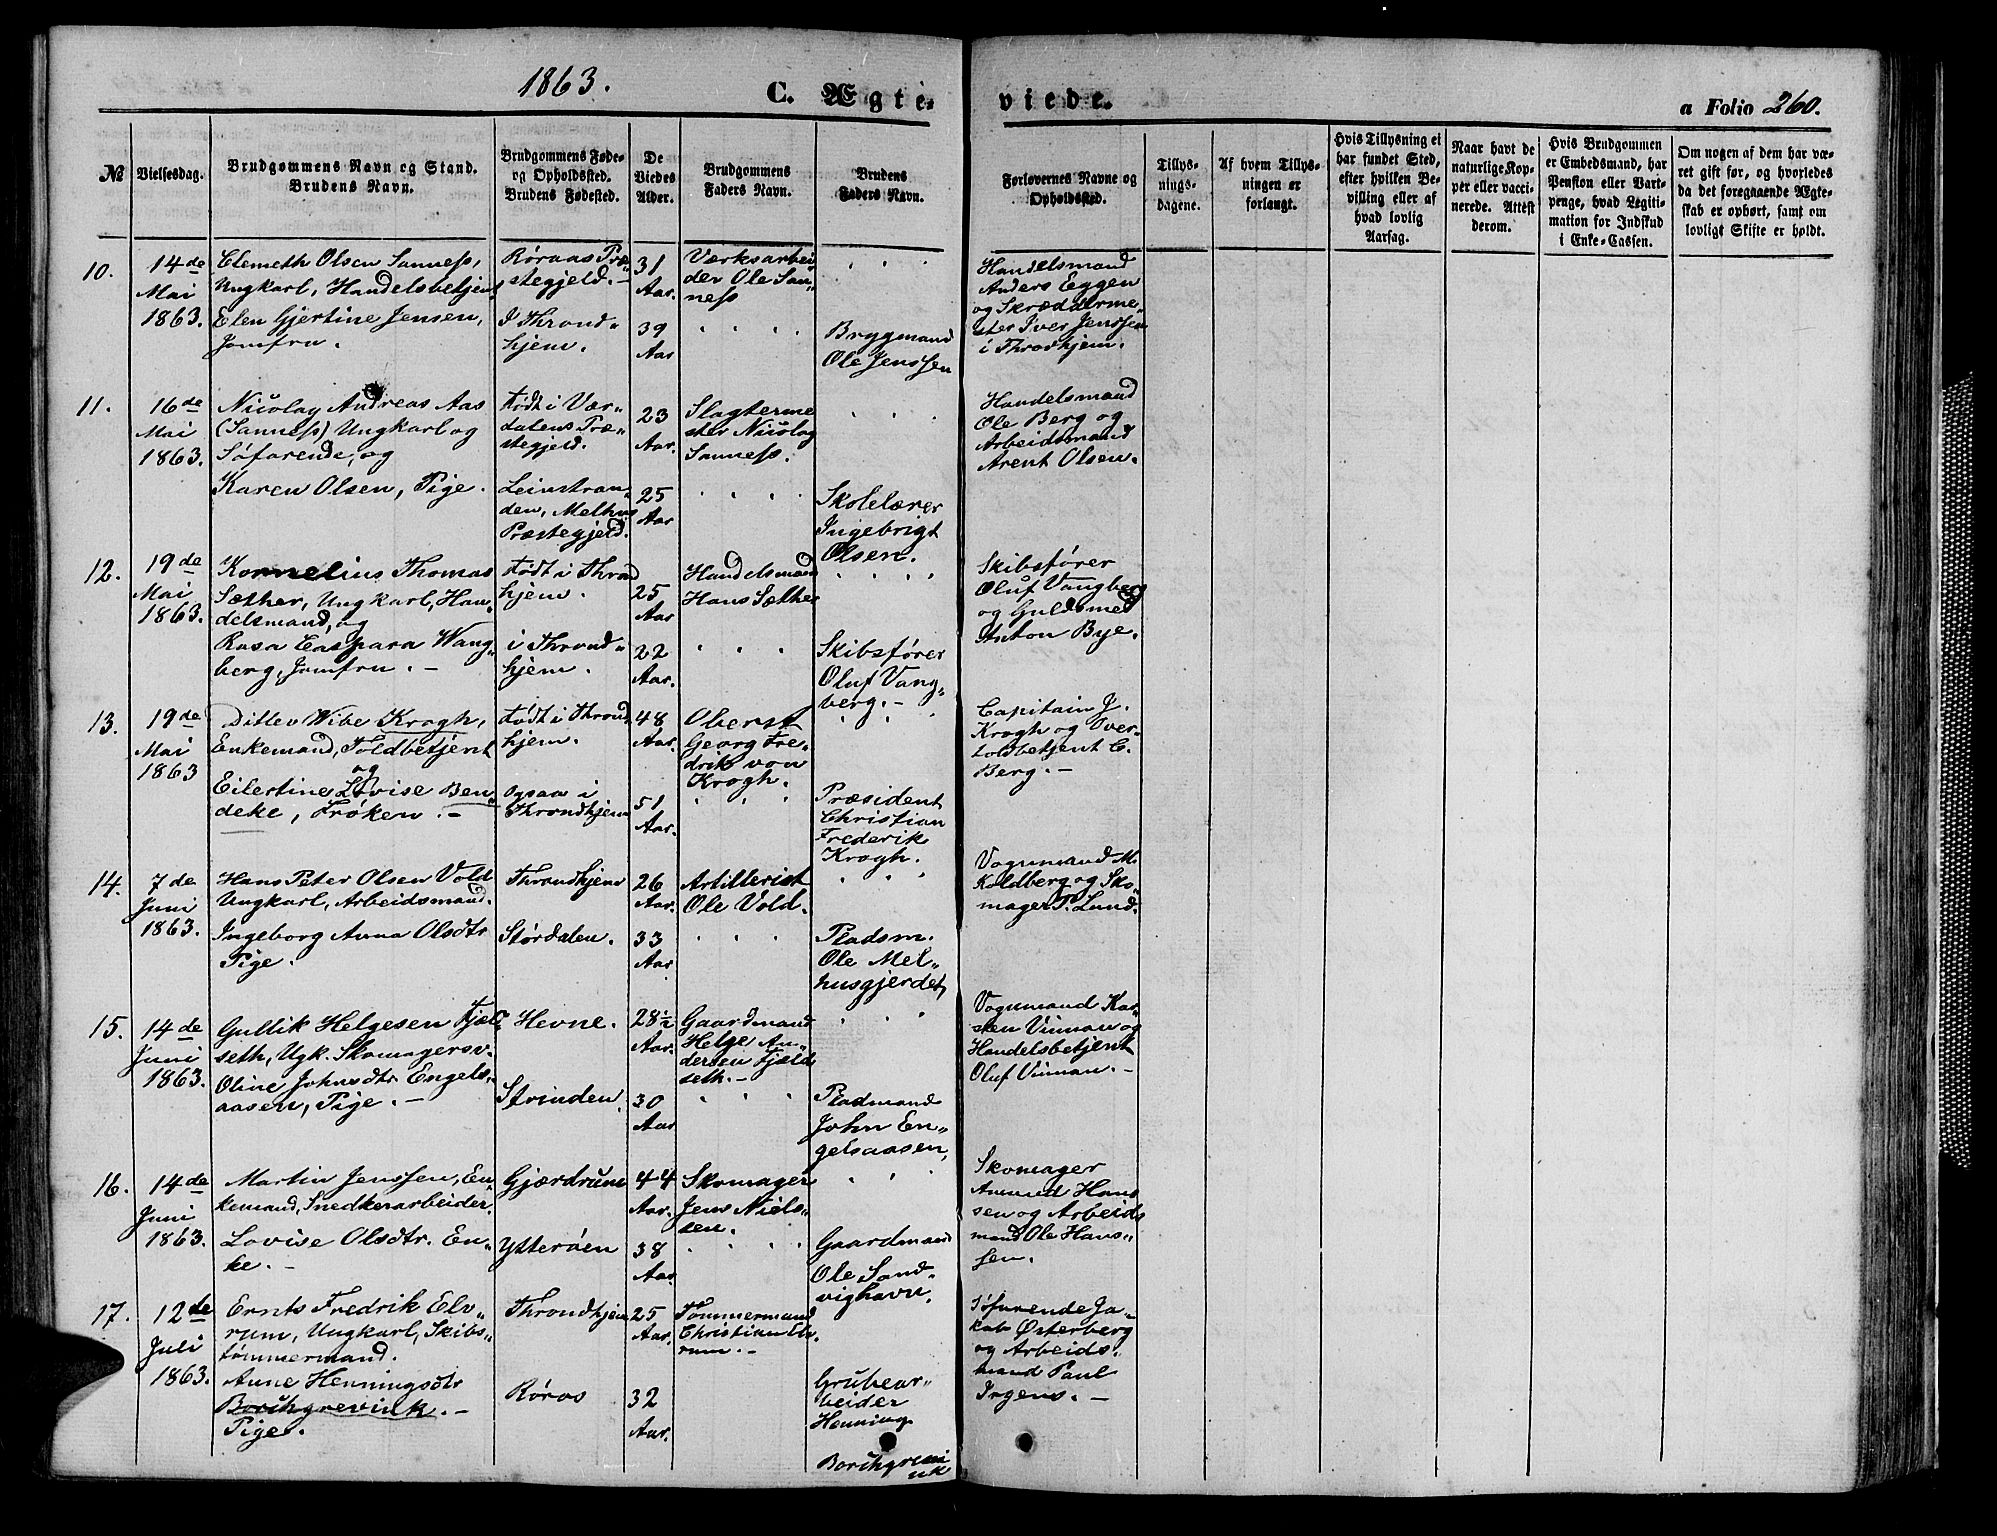 1863.
C. Ægte-
viede.
a Folio 260.
№
Vielsesdag.
Brudgommens Navn og Stand.
Brudens Navn.
Brudgommens Føde-
og Opholdssted.
Brudens Fødested.
De
Viedes
Alder.
Brudgommens
Faders Navn.
Brudens
Faders Navn.
Forlovernes Navne og
Opholdssted.
Tillys-
nings-
dagene.
Af hvem Tillys-
ningen er
forlangt.
Hvis Tillysning ei
har fundet Sted,
efter hvilken Be-
villing eller af
hvad lovlig
Aarsag.
Naar havt de
naturlige Kop-
per eller vacci-
nerede. Attest
derom.
Hvis Brudgommen
er Embedsmand, har
Pension eller Vart-
penge, hvad Legiti-
mation for Indskud
i Enke-Cassen.
Om nogen af dem har væ-
ret gift før, og hvorledes
da det foregaaende Ægte-
skab er ophørt, samt om
lovligt Skifte er holdt.
10.
14de
Mai
1863.
Clemeth Olsen Sanness,
Ungkarl, Handelsbetjent
Elen Gjertine Jensen,
Jomfru.
Røraas Præ-
stegjeld.-
I Thrond-
hjem.
31
Aar.
39
Aar
Værksarbei-
der Ole San-
ness
Brygmand
Ole Jenssen
Handelsmand
Anders Eggen
og Skrædderme-
ster Iver Jenssen
i Throdhjem.
11.
16de
Mai
1863.
Nicolay Andreas Aas
(Sanness) Ungkarl og
Søfarende, og
Karen Olsen, Pige.
Født i Vær-
dalens Præ-
stegjeld.
Leinstran-
den, Melhus
Præstegjeld.
23
Aar.
25
Aar
Slagterme
ster Nicolay
Sanness.
Skolelærer
Ingebrigt
Olsen.
Handelsmand
Ole Berg og
Arbeidsmand
Arent Olsen.
12.
19de
Mai
1863.
Kornelius Thomas
Sæther, Ungkarl, Han-
delsmand, og
Rosa Caspara Wang-
berg, Jomfru. -
Født i Thrond
hjem.
i Thrond-
hjem.
25
Aar
22
Aar.
Handelsmand
Hans Sæther
Skibsfører
Oluf Vang-
berg.-
Skibsfører
Oluf Vangberg
og Guldsmed
Anton Bye.
13.
19de
Mai
1863
Ditlev Wibe Krogh,
Enkemand, Toldbetjent
og
Eilertine Lovise Ben-
deke, Frøken. -
Født i Thrond
hjem.
ogsaa i
Throndhjem
48
Aar.
51
Aar.
Oberst
Georg Fre-
drik von
Krogh.
Præsident
Christian
Frederik
Krogh.
Capitain J.
Krogh og Over-
toldbetjent C.
Berg. -
14.
7de
Juni
1863.
Hans Peter Olsen Vold
Ungkarl, Arbeidsmand.
Ingeborg Anna Olsdtr
Pige.
Throndhjem
Størdalen.
26
Aar.
33
Aar
Artillerist
Ole Vold.
Pladsm.
Ole Mel-
husgjerdet,
Vognmand M.
Koldberg og Sko-
mager P. Lund.
15.
14de
Juni
1863.
Gullik Helgesen Fjæl-
seth, Ugk. Skomagersv.
Oline Johnsdtr Engels-
aasen, Pige. -
Hevne.
Strinden.
28½
Aar.
30
Aar
Gaardmand
Helge An-
dersen Fjæld
seth.-
Pladmand
John En-
gelsaasen,
Vognmand Kar-
sten Vinman og
Handelsbetjent
Oluf Vinman. -
16.
14de
Juni
1863.
Martin Jenssen, En-
kemand, Snedkerarbeider.
Lovise Olsdtr. En-
ke. -
Gjærdrum
Ytterøen
44
Aar.
38
Aar.
Skomager
Jens Niels-
sen.
Gaardmand
Ole Sand-
vighavn.
Skomager
Ammund Hans
sen og Arbeids
mand Ole Hans-
sen.
17.
12de
Juli
1863.
Ernts Fredrik Elv-
rum, Ungkarl, Skibs-
tømmermand.
Anne Henningsdtr
Borchgrevink. -
Pige.
Throndhjem
Røros
25
Aar.
32
Aar.
Tømmermand
Christian Elv
rum.-
Grubear-
beider
Henning
Borchgrevi
nk
Søfarende Ja-
kob Østerberg
og Arbeids-
mand Paul
Irgens. -